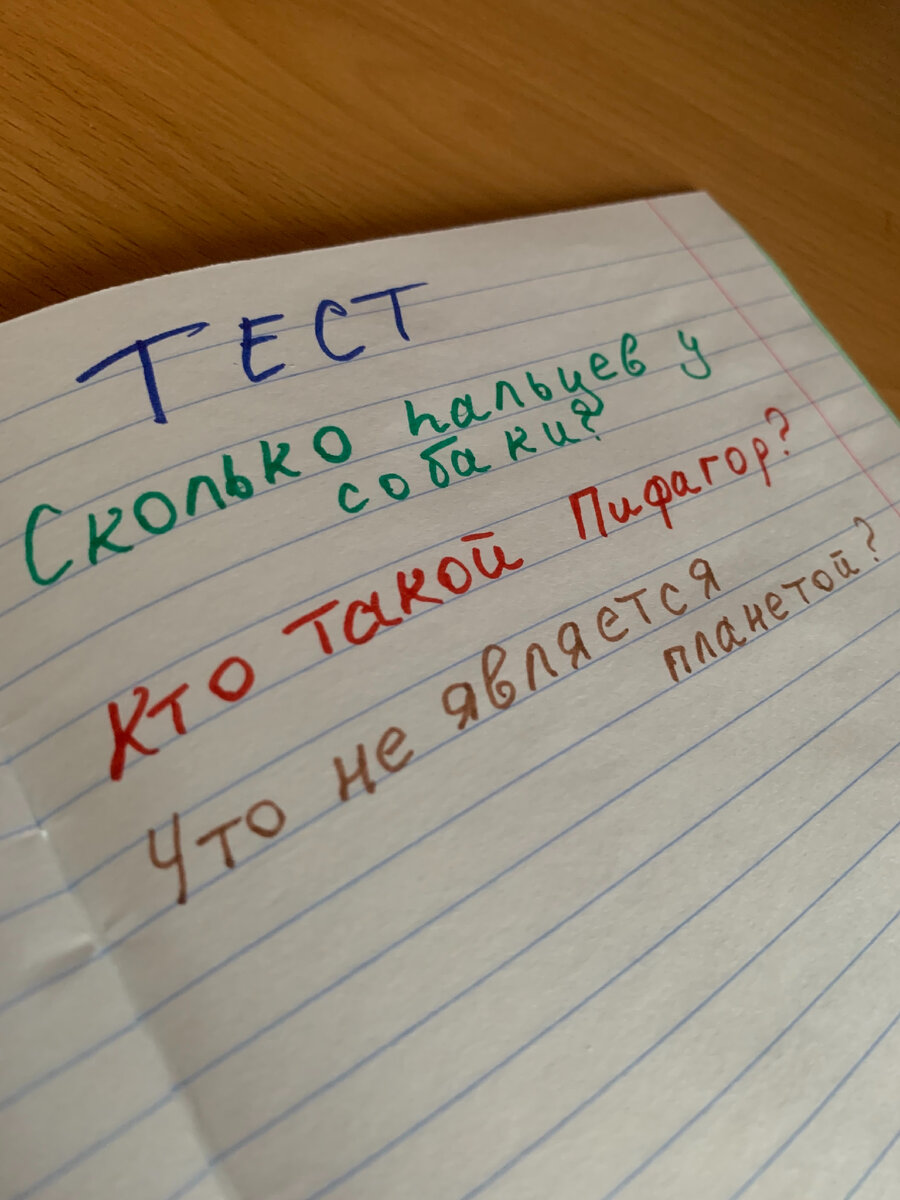 ТЕСТ
Сколько пальцев у
собаки?
Кто такой Пифагор?
Что не является
планетой?